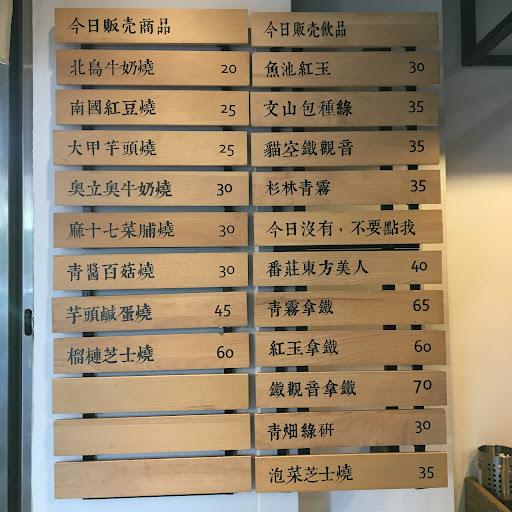 今日販売商品
北島牛奶燒 20
南國紅豆燒 25
大甲芋頭燒 25
奧立奧牛奶燒 30
麻十七菜脯燒 30
青醬百菇燒 30
芋頭鹹蛋燒 45
榴槤芝士燒 60
今日販売飲品
魚池紅玉 30
文山包種綠 35
貓空鐵觀音 35
杉林青霧 35
今日沒有，不要點我
番莊東方美人 40
青霧拿鐵 65
紅玉拿鐵 60
鐵觀音拿鐵 70
青畑綠研 30
泡菜芝士燒 35